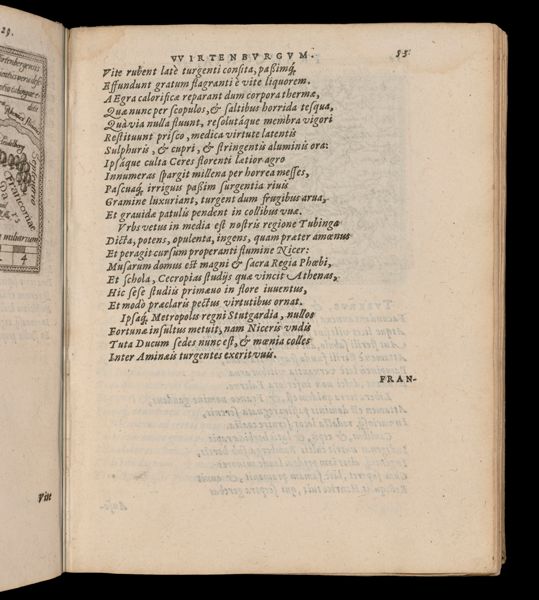 29.
Vite
VVIRTENBVRGVM. 53
Vite rubent latè turgenti consita, paßimq́;
Effundunt gratum flagranti è vite liquorem.
AEgra calorificæ reparant dum corpora thermæ,
Quæ nunc per scopulos, & saltibus horrida tesqua,
Quà via nulla fluunt, resolutáque membra vigori
Restituunt prisco, medica virtute latentis
Sulphuris, & cupri, & stringentis aluminis ora:
Ipsáque culta Ceres florenti lætior agro
Innumeras spargit millena per horrea messes,
Pascuaq́; irriguis paßim surgentia riuis
Gramine luxuriant, turgent dum frugibus arua,
Et grauidæ patulis pendent in collibus vuæ.
Vrbs vetus in media est nostris regione Tubinga
Dicta, potens, opulenta, ingens, quam præter amœnus
Et peragit cursum properanti flumine Nicer:
Musarum domus est magni & sacra Regia Phœbi,
Et schola, Cecropias studijs quæ vincit Athenas,
Hic sese studijs primæuo in flore iuuentus,
Et modò præclaris pectus virtutibus ornat.
Ipsaq́; Metropolis regni Stutgardia, nullos
Fortunæ insultus metuit, nam Niceris vndis
Tuta Ducum sedes nunc est, & mœnia colles
Inter Aminæis turgentes exerit vuis.
FRAN-